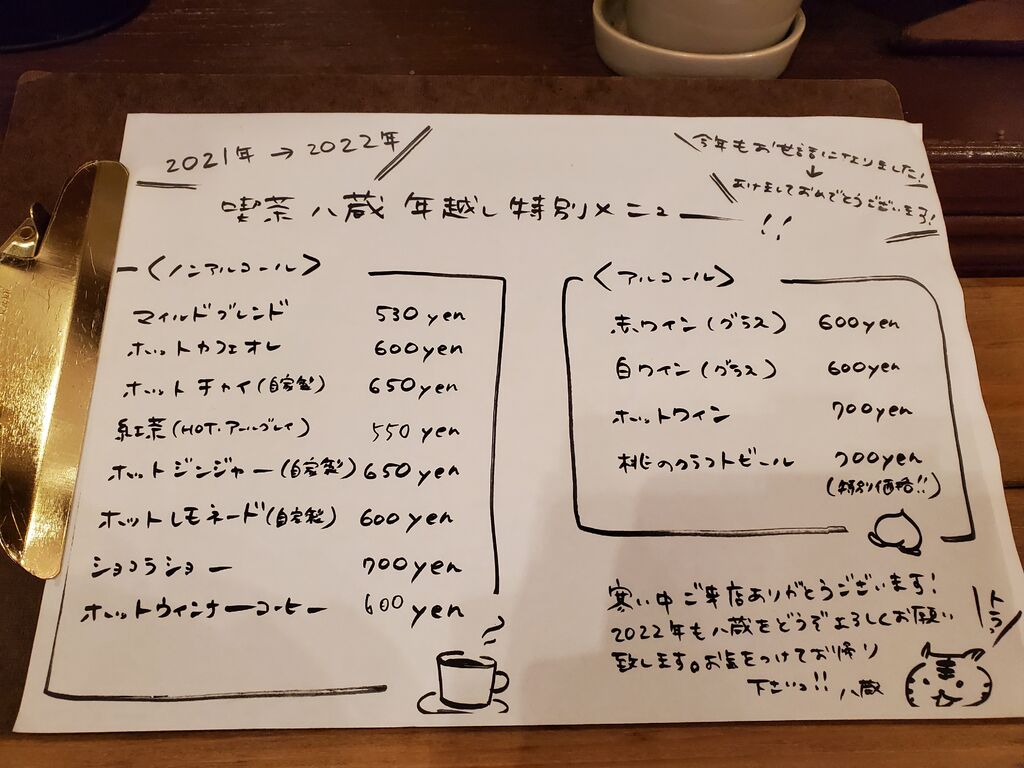 2021年 → 2022年
今年もお世話になりました!
↓
あけましておめでとうございます!
喫茶 八蔵 年越し特別メニュー!!
<ノンアルコール>
マイルドブレンド 530 yen
ホットカフェオレ 600 yen
ホットチャイ(自家製) 650 yen
紅茶(HOT・アールグレイ) 550 yen
ホットジンジャー(自家製) 650 yen
ホットレモネード(自家製) 600 yen
ショコラショー 700 yen
ホットウィンナーコーヒー 600 yen
<アルコール>
赤ワイン(グラス) 600 yen
白ワイン(グラス) 600 yen
ホットワイン 700 yen
桃のクラフトビール 700 yen
(特別価格!!)
寒い中ご来店ありがとうございます!
2022年も八蔵をどうぞよろしくお願い
致します。お気をつけてお帰り
下さいっ!! 八蔵
トラっ